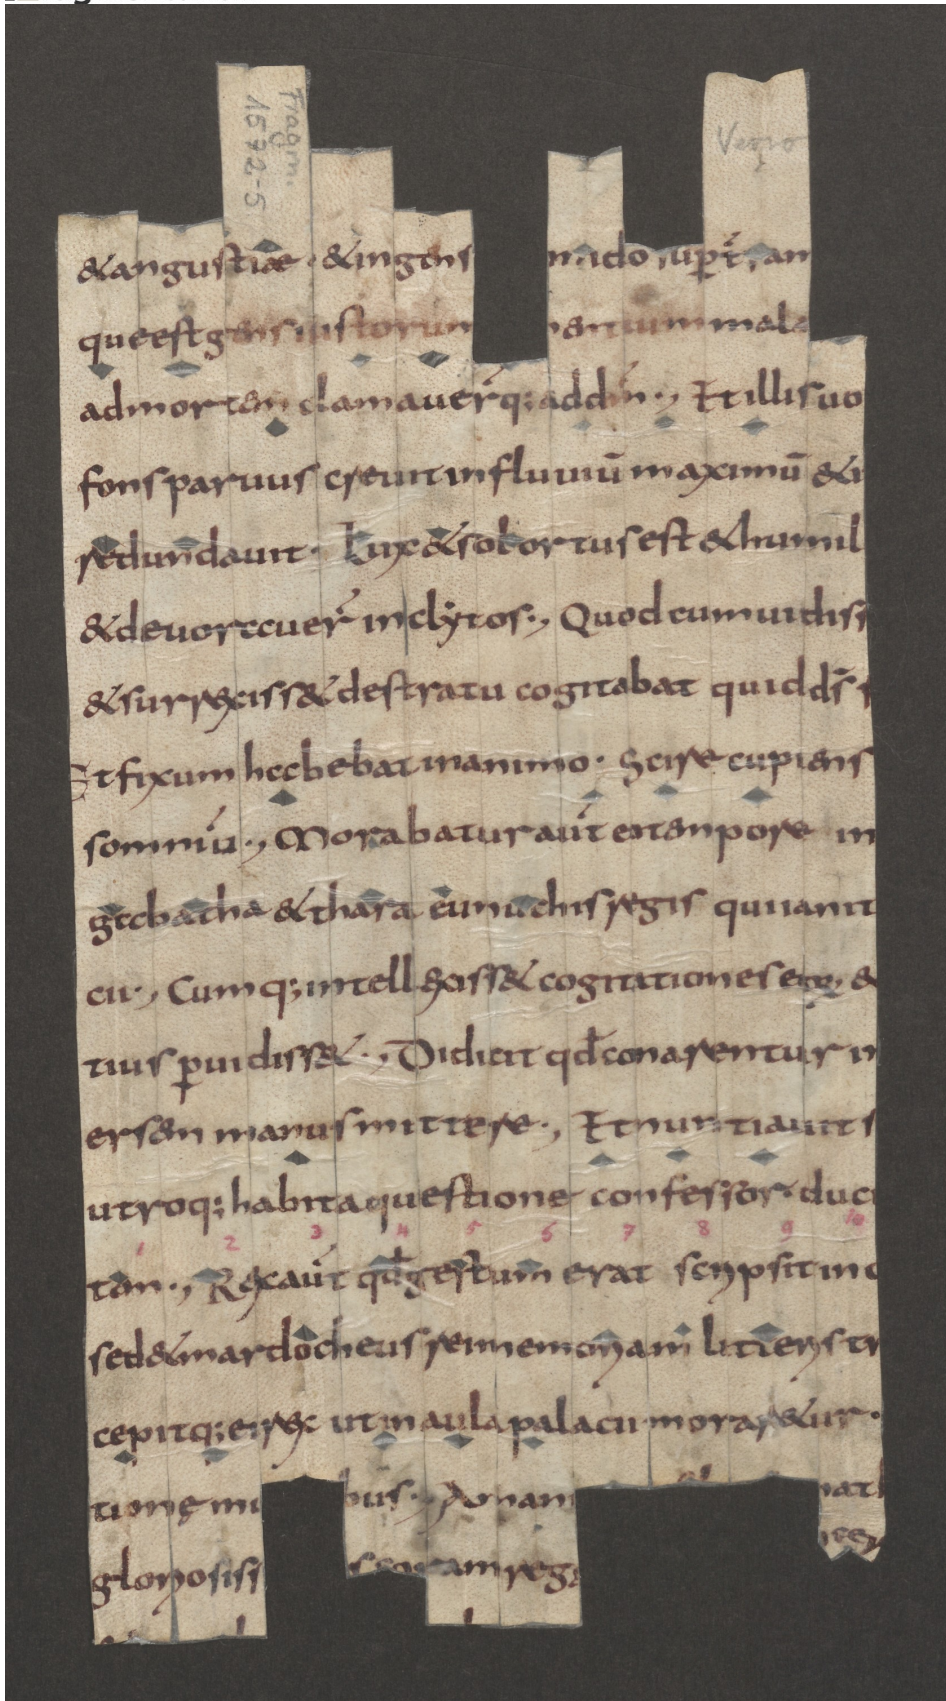 Fragm.
1572-5
&angustiae · &ingens mido sup t(er)ram
queest gens iustorum tentium mala
admortem clamauer(unt)q; addm̄ ·, Et illis uo
fons paruus creuit influuiū maximū &i
redundauit · Lux&sol ortus est &humil
&deuorccuer(unt) inclytos ·, Quod cum uidiss
&surrexiss& destratu cogitabat quid ds̄
&fixum hccbebat inanimo · Scire cupiens
somniū ·, Morabatur aūt eo tempore in
gccbatha &thara eunuchis regis qui ianit
cii ·, Cumq; intellexiss& cogitationes eoꝝ &
tius ꝓuidiss& ·, Didicit qd̄ conarentur in
ersem manus mittere ·, Et nuntiauit s
utroq; habita questione confessor duci
tem ·, Rex aūt qd̄ gestum erat scripsit in c
sed&mardocheus rei memoriam litteris tr
cepitq; ei rex ut in aula palacii morar&ur ·
tione mu bus ·, Aman nat
gloriosiss s coram rege
1 2 3 4 5 6 7 8 9 10